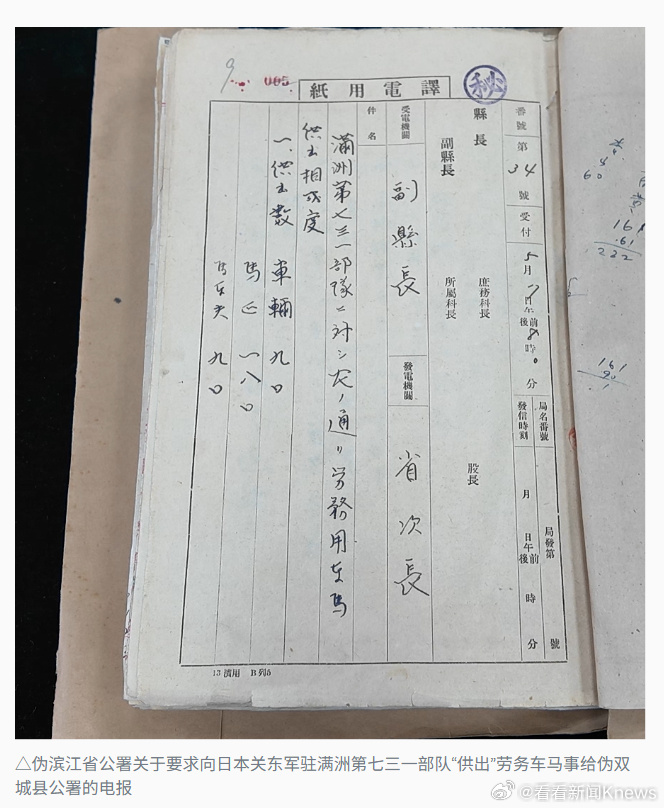 譯電用紙
秋
005
番號 第34號 受付 5月 日午前後8時 分
局名番號 局發第 號
發信時刻 月 日午前後 時 分
縣長 庶務科長 股長
副縣長 所屬科長
受電機關 副縣長 發電機關 省次長
件名
滿洲第七三一部隊ニ対シ左ノ通リ労務用車馬
供出相成度
一、供出数 車輛 九〇
馬匹 一八〇
馬車夫 九〇
13 濱用 B列5
60
161
.61
222
161
△伪滨江省公署关于要求向日本关东军驻满洲第七三一部队“供出”劳务车马事给伪双
城县公署的电报
@看看新闻Knews